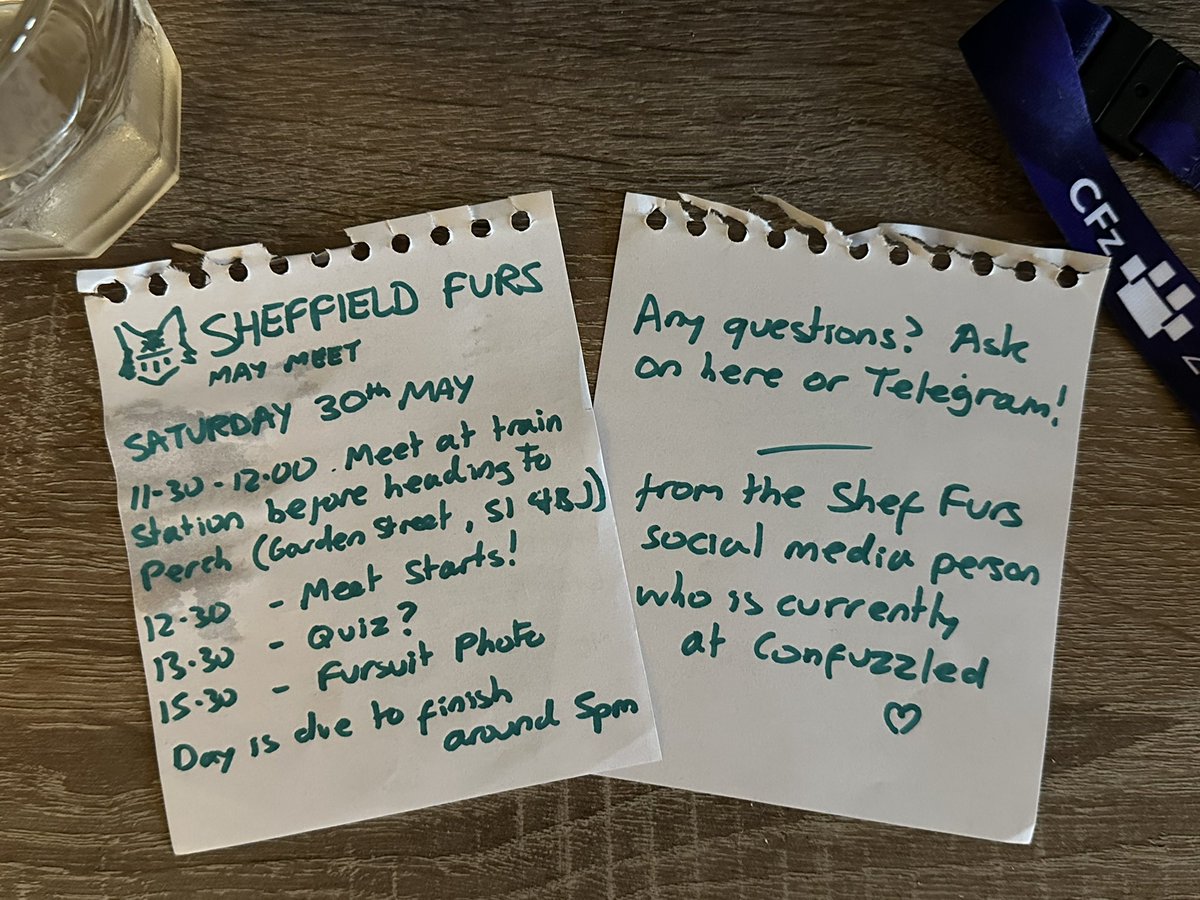 SHEFFIELD FURS
MAY MEET
SATURDAY 30th MAY
11-30 - 12.00. Meet at train
station before heading to
Perch (Garden Street, S1 4BJ)
12-30 - Meet Starts!
13-30 - Quiz?
15-30 - Fursuit Photo
Day is due to finish
around 5pm
Any questions? Ask
on here or Telegram!
from the Shef Furs
social media person
who is currently
at Confuzzled
♡
CFz